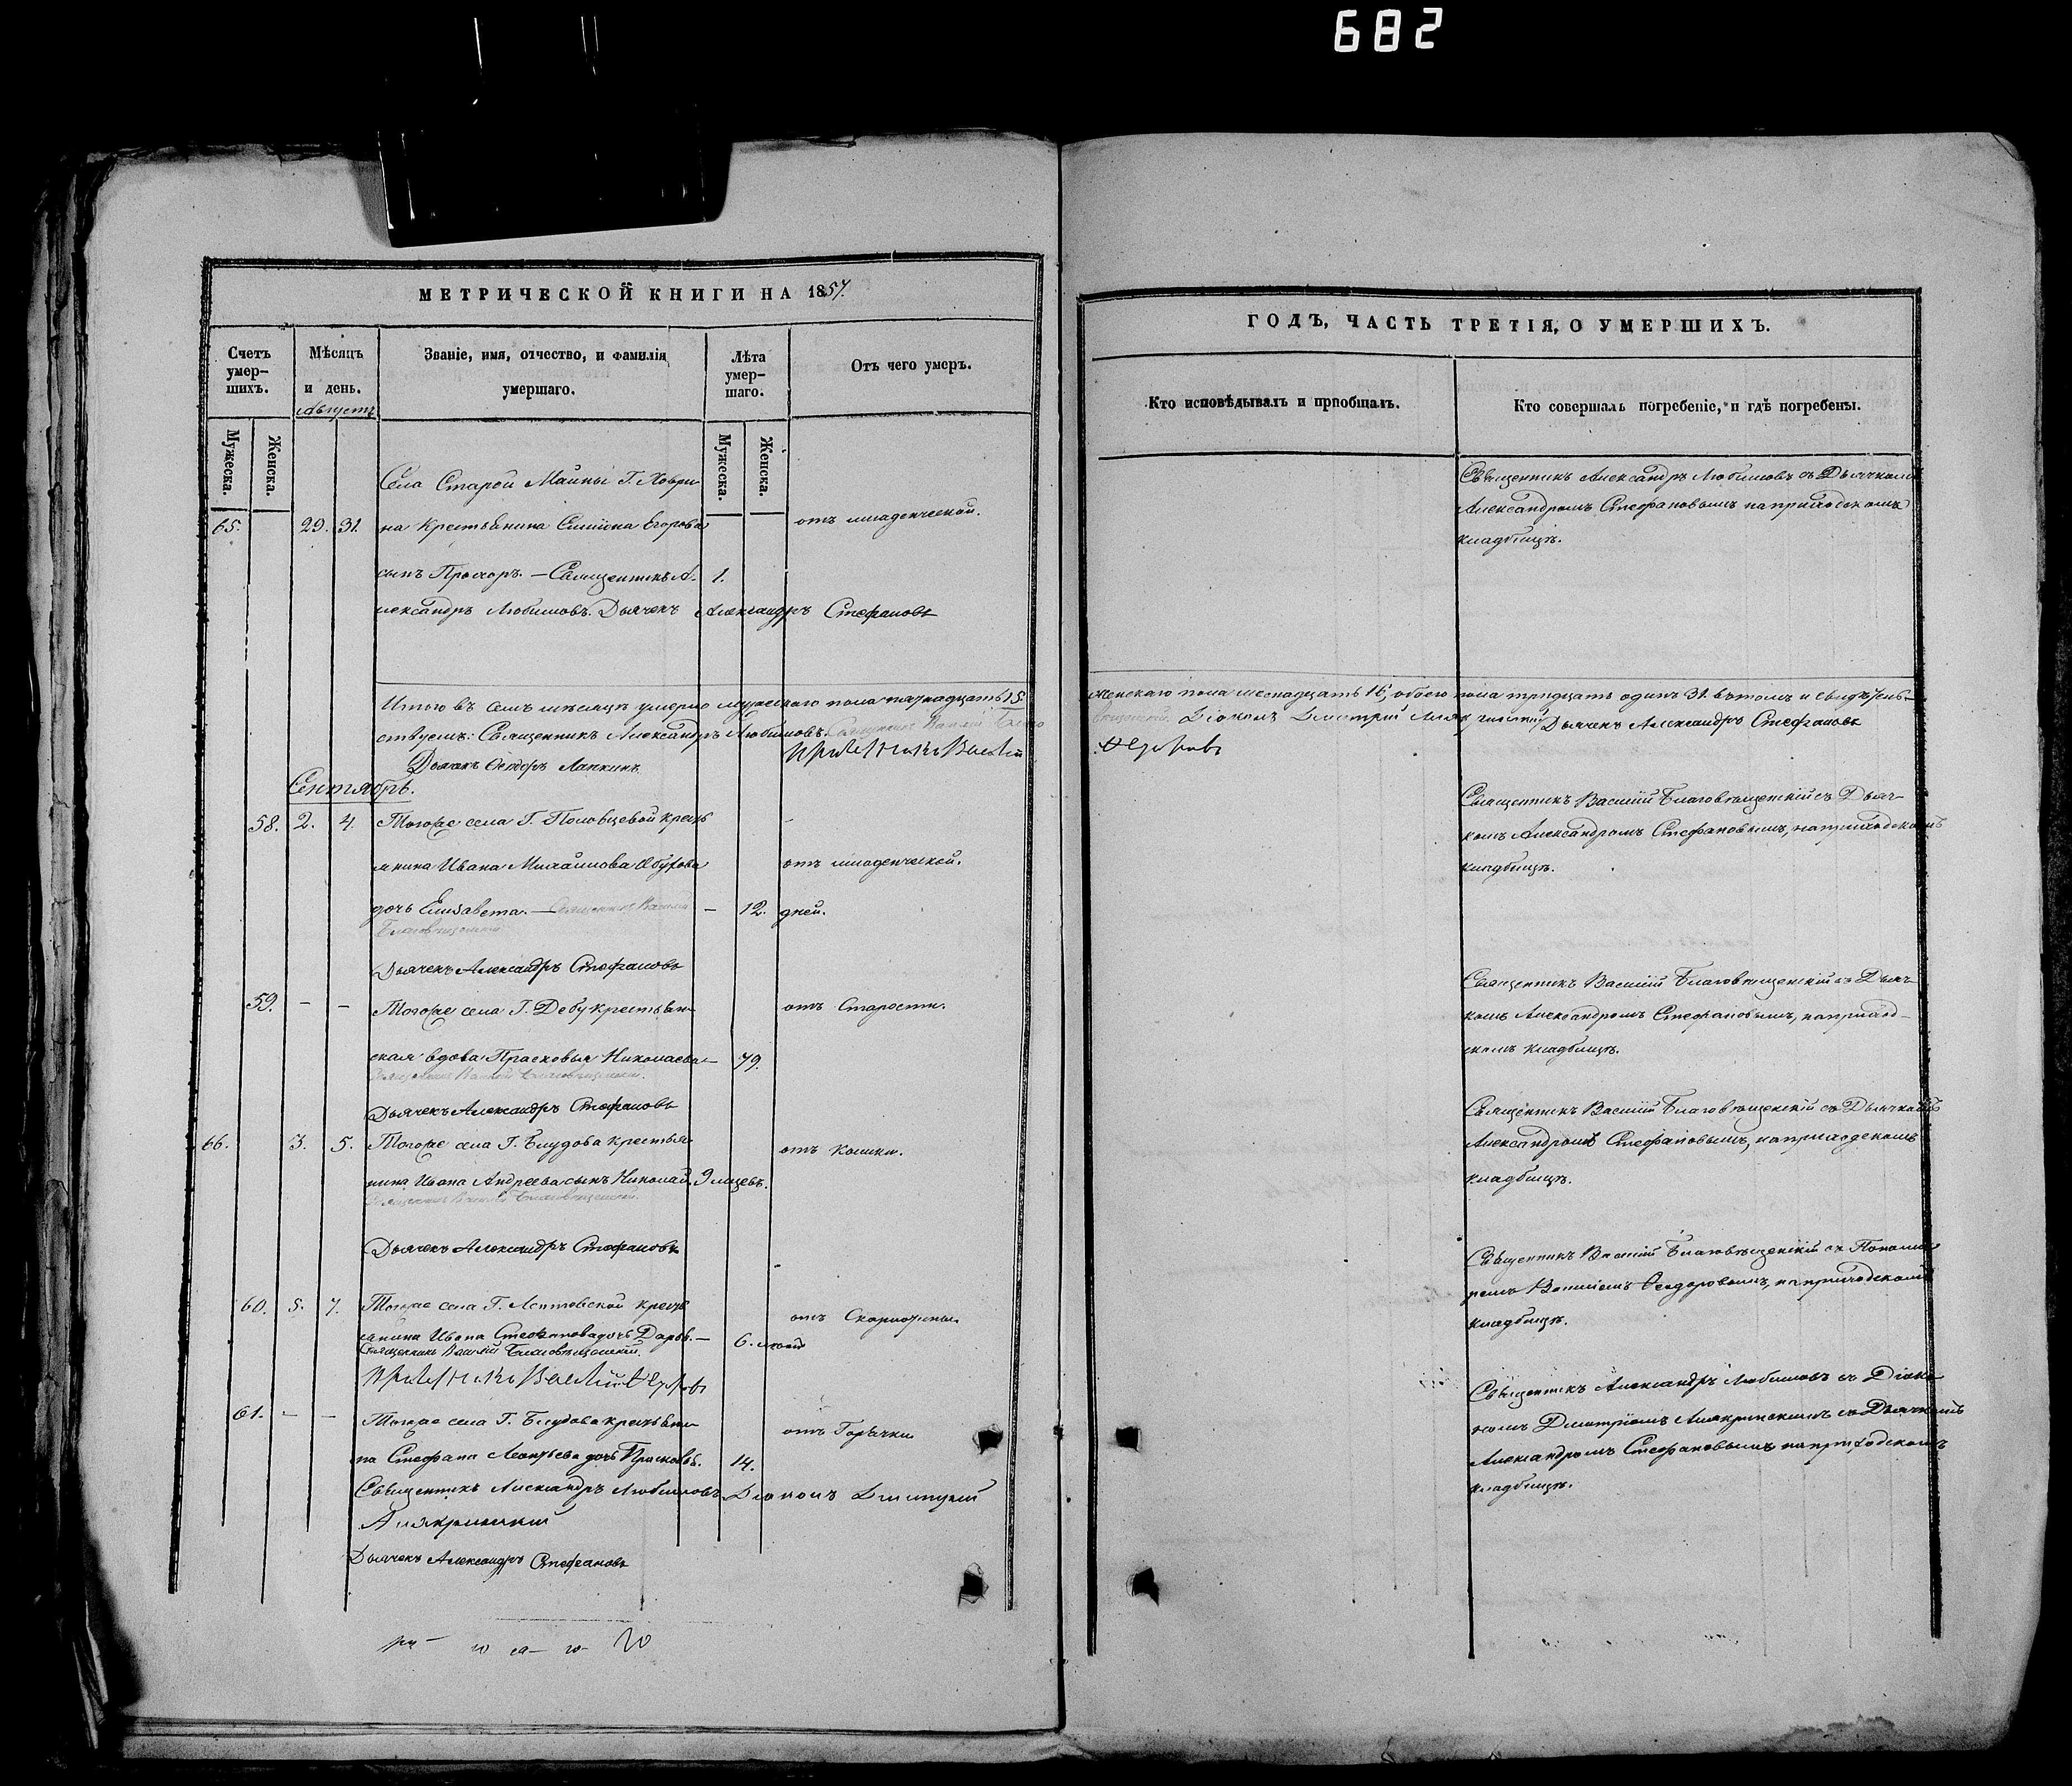 682
МЕТРИЧЕСКОЙ КНИГИ НА 1857.
Счетъ умер-
шихъ.
Мѣсяцъ
и день.
Августъ
Званіе, имя, отчество, и фамилія
умершаго.
Лѣта
умер-
шаго.
Отъ чего умеръ.
Мужеска.
Женска.
Мужеска.
Женска.
Села Старой Майны Г. Ховри-
65. 29. 31. на крестьянина Симіона Егорова отъ младенческой.
сынъ Прохоръ. — Священникъ А- 1.
лександръ Любимовъ. Дьячекъ Александръ Стефановъ
Итого въ семъ мѣсяцѣ умерло мужескаго пола пятнадцать 15.
ствуемъ: Священникъ Александръ Любимовъ. Священникъ Василій
Дьячекъ Ѳеодоръ Лапкинъ
Сентябрь.
58. 2. 4. Тогоже села Г. Половцевой кресть
янина Ивана Михайлова Обухова отъ младенческой.
дочь Елизавета. — Священникъ Василій — 12. дней.
Благовѣщенскій
Дьячекъ Александръ Стефановъ
59. — — Тогоже села Г. Дебу крестьян- отъ Старости.
ская вдова Прасковья Николаева — 79.
Священникъ Василій Благовѣщенскій.
Дьячекъ Александръ Стефановъ
66. 3. 5. Тогоже села Г. Блудова крестья- отъ Колики.
нина Ивана Андреева сынъ Николай. 9 мѣсцевъ.
Священникъ Василій Благовѣщенскій.
Дьячекъ Александръ Стефановъ
60. 5. 7. Тогоже села Г. кресть отъ
янина Ивана Стефанова дочь Дарья. — 6.
Священникъ Василій Благовѣщенскій.
61. — — Тогоже села Г. Блудова крестьяни- отъ Горячки
на Стефана Леонтьева дочь Прасковья. 14.
Священникъ Александръ Любимовъ Діаконъ Димитрій
Алякринскій
Дьячекъ Александръ Стефановъ
ГОДЪ, ЧАСТЬ ТРЕТІЯ, О УМЕРШИХЪ.
Кто исповѣдывалъ и пріобщалъ.
Кто совершалъ погребеніе, и гдѣ погребены.
Священникъ Александръ Любимовъ съ Дьячкомъ
Александромъ Стефановымъ на приходскомъ
кладбищѣ.
женскаго пола шеснадцать 16, обоего пола тридцать одинъ 31. въ томъ и свидѣтель-
Діаконъ Дмитрій Алякринскій Дьячекъ Александръ Стефановъ
Священникъ Василій Благовѣщенскій съ Дьяч-
комъ Александромъ Стефановымъ, на приходскомъ
кладбищѣ.
Священникъ Василій Благовѣщенскій съ Дьяч-
комъ Александромъ Стефановымъ, на приход-
скомъ кладбищѣ.
Священникъ Василій Благовѣщенскій съ Дьячкомъ
Александромъ Стефановымъ, на приходскомъ
кладбищѣ.
Священникъ Василій Благовѣщенскій съ Понома-
ремъ Василіемъ Ѳеодоровымъ, на приходскомъ
кладбищѣ.
Священникъ Александръ Любимовъ съ Діако-
номъ Дмитріемъ Алякринскимъ съ Дьячкомъ
Александромъ Стефановымъ на приходскомъ
кладбищѣ.